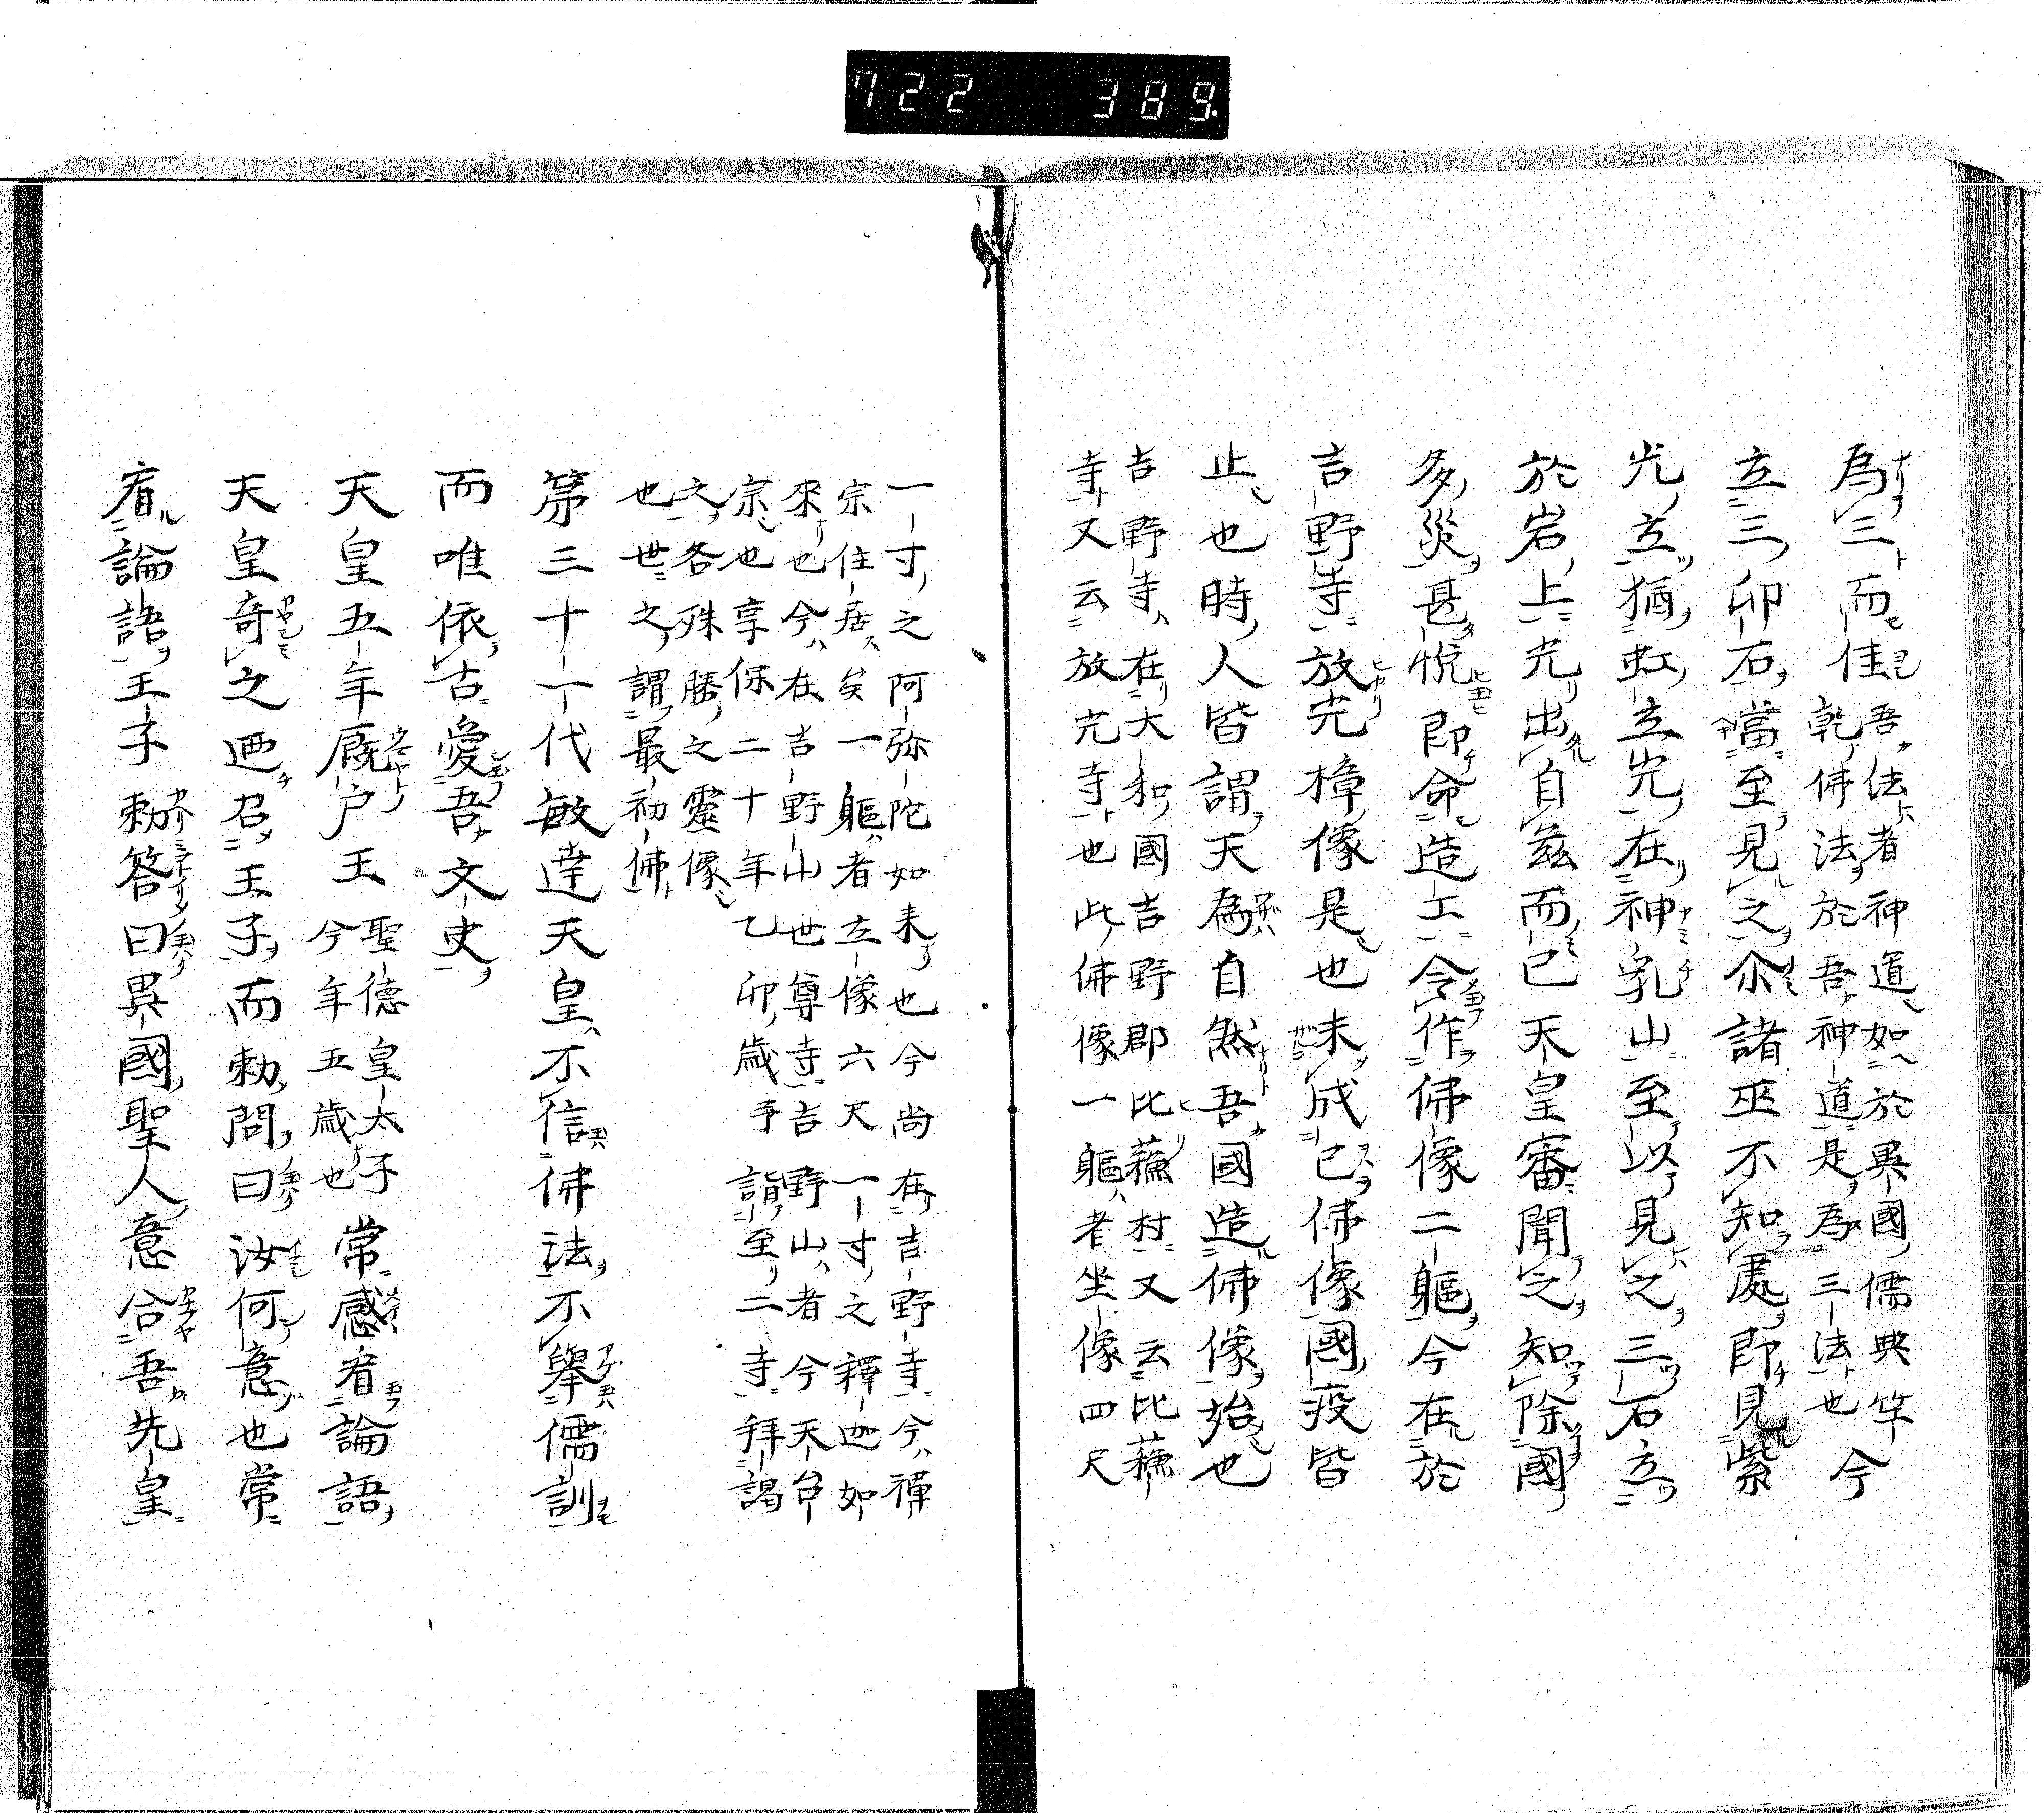 722 389
為三而佳
吾法者神道如於異國儒典竺
乾佛法於吾神道是為三法也
今
立三卯石當至見之尒諸巫不知處即見紫
光立猶虹立光在神乳山至以見之三石立
於岩上光出自茲而已天皇審聞之知除國
多災甚悅即命造工令作佛像二軀今在於
吉野寺放光樟像是也未成已佛像國疫皆
止也時人皆謂天為自然吾國造佛像始也
吉野寺在大和國吉野郡比蘓村又云比蘓
寺又云放光寺也此佛像一軀者坐像四尺
一寸之阿弥陀如来也今尚在吉野寺今禪
宗住居矣一軀者立像六尺一寸之釋迦如
來也今在吉野山世尊寺吉野山者今天台
宗也享保二十年乙卯歳予詣至二寺拜謁
之各殊勝之靈像
也世之謂最初佛
第三十一代敏達天皇不信佛法不舉儒訓
而唯依古愛吾文史
天皇五年厩戸王
聖德皇太子
今年五歳也
常感看論語
天皇奇之廼召王子而勅問曰汝何意也常
看論語王子勅答曰異國聖人意合吾先皇